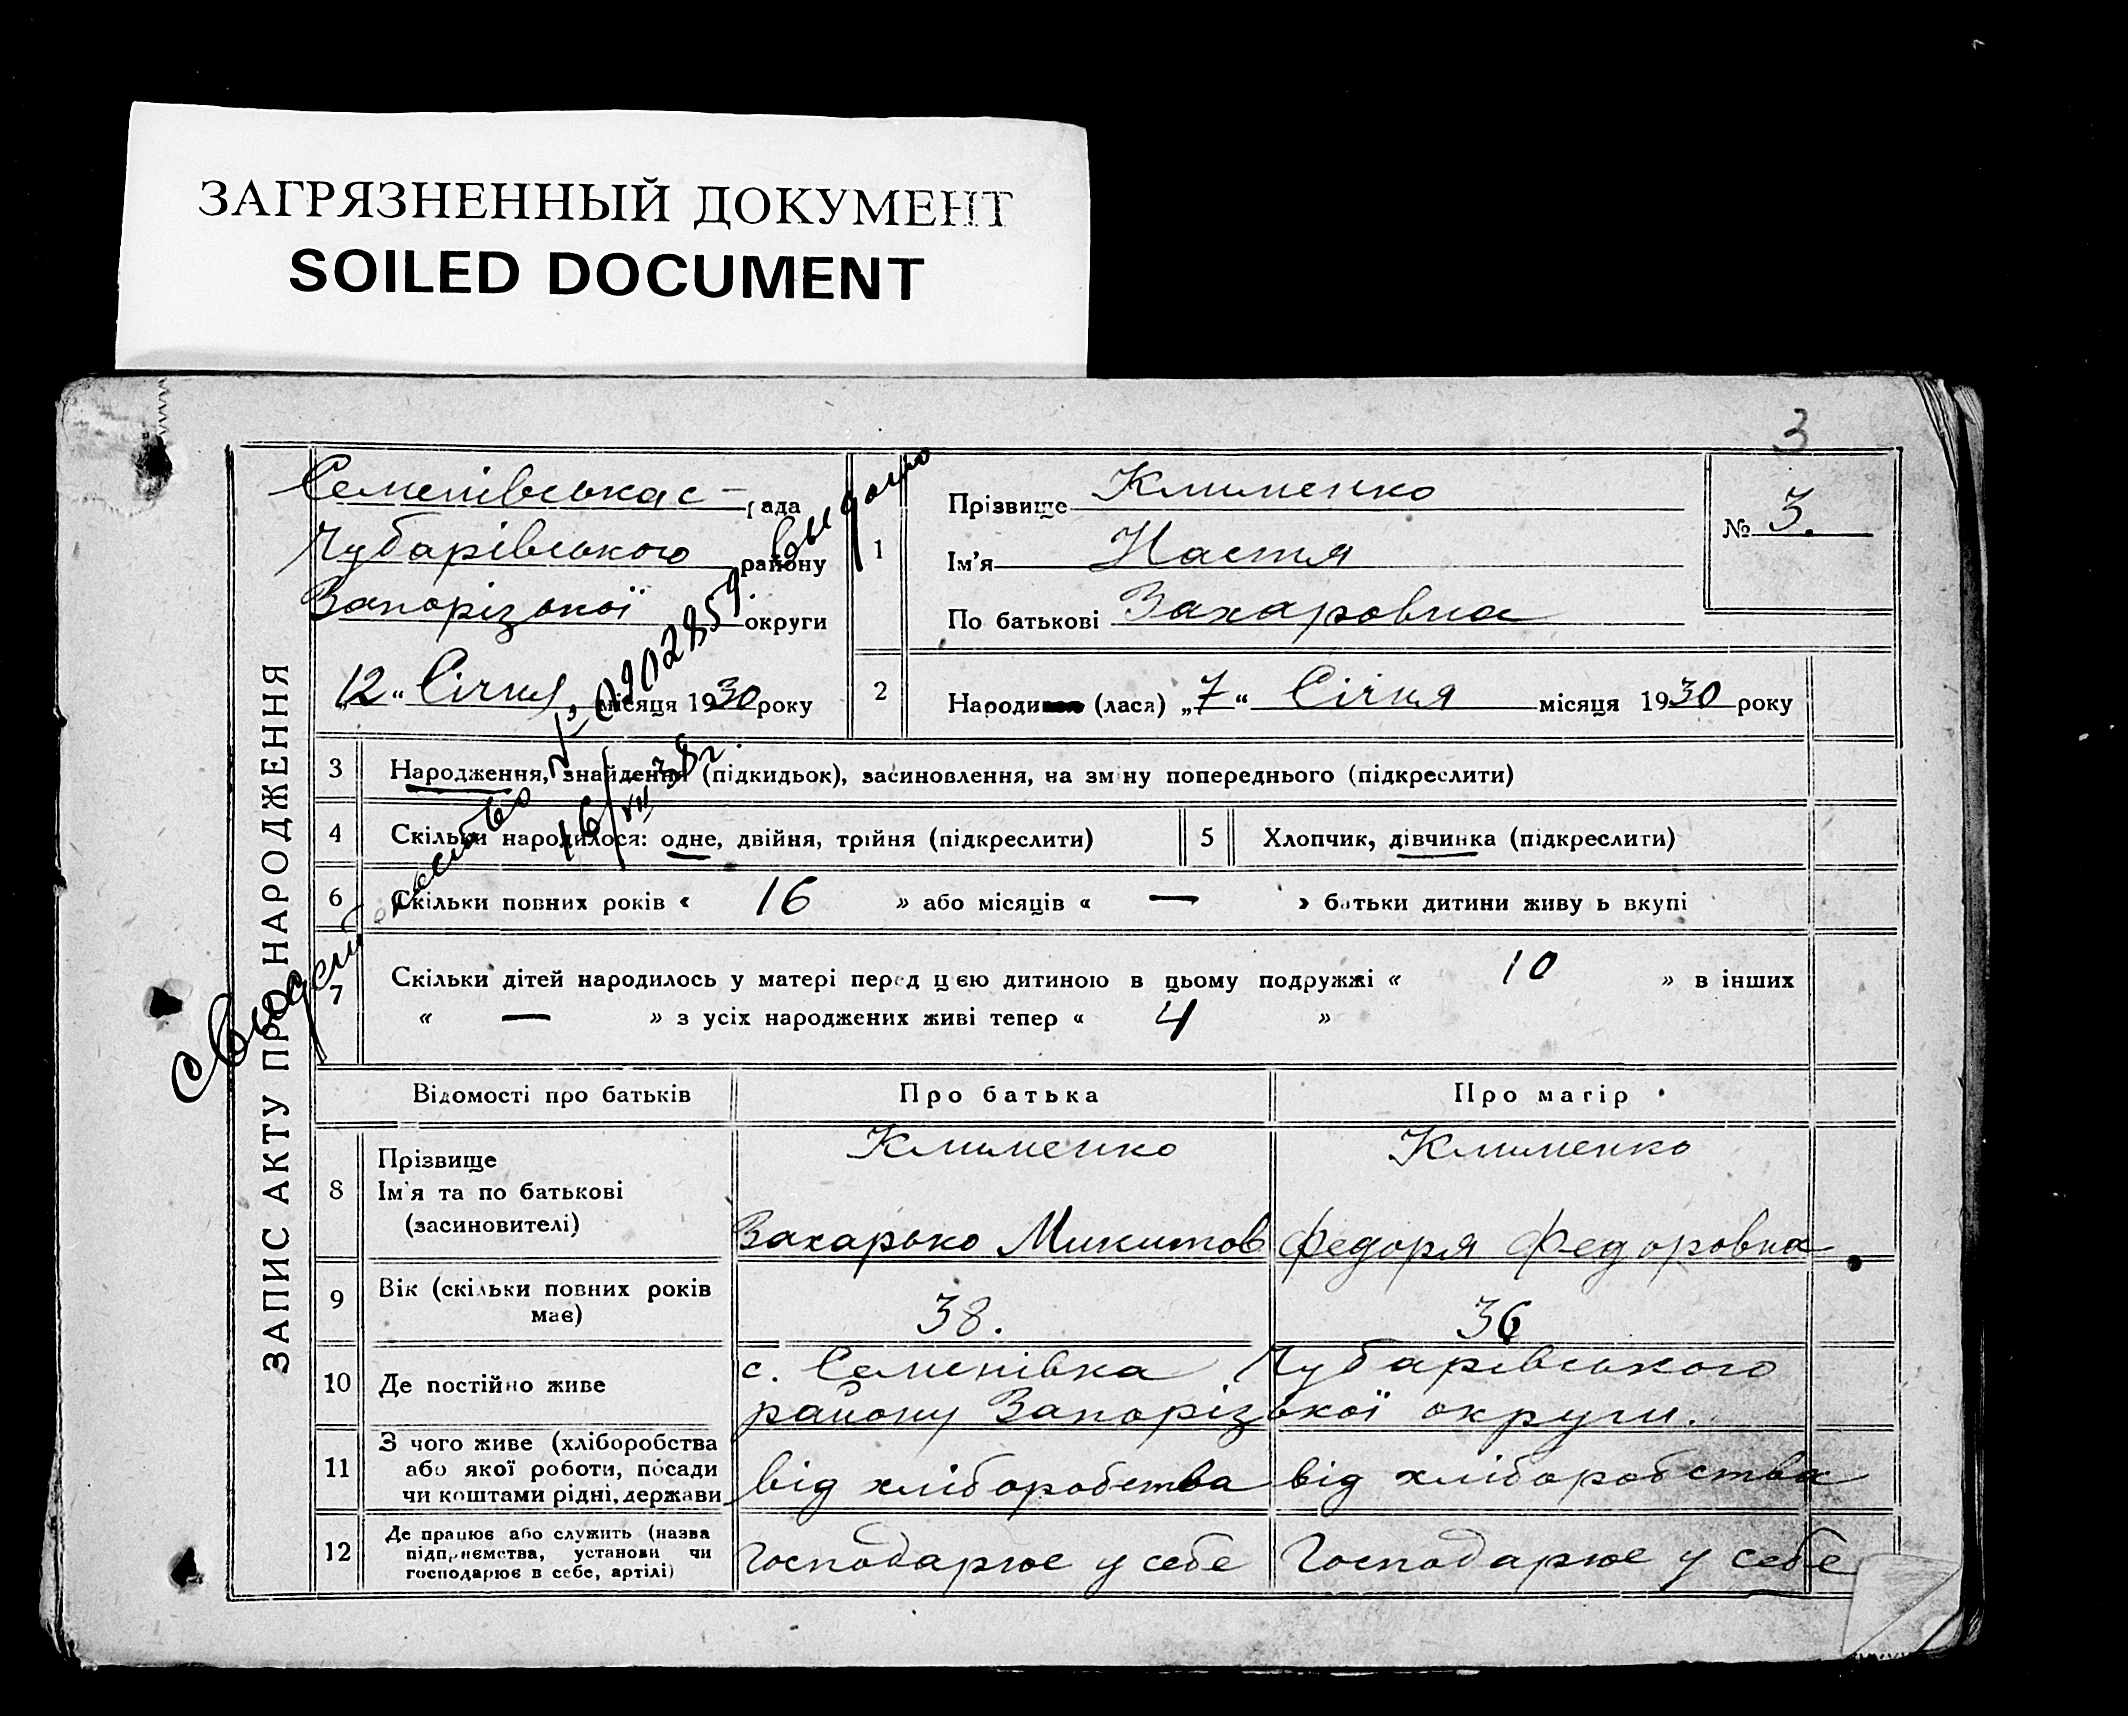 ЗАГРЯЗНЕННЫЙ ДОКУМЕНТ
SOILED DOCUMENT
3
ЗАПИС АКТУ ПРО НАРОДЖЕННЯ
Семенівська с- рада
Чубарівського району
Запорізької округи
„12“ Січня місяця 1930 року
Свидетельство № 020285 выдано
16/VII 38 г.
1
Прізвище Клименко
Ім'я Настя
По батькові Захаровна
№ 3.
2
Народи (лася) „7“ Січня місяця 1930 року
3 Народження, знайдення (підкидьок), засиновлення, на зміну попереднього (підкреслити)
4 Скільки народилося: одне, двійня, трійня (підкреслити)
5 Хлопчик, дівчинка (підкреслити)
6 Скільки повних років « 16 » або місяців « — » батьки дитини живуть вкупі
7 Скільки дітей народилось у матері перед цією дитиною в цьому подружжі « 10 » в інших
« — » з усіх народжених живі тепер « 4 »
Відомості про батьків Про батька Про матір
8 Прізвище Клименко Клименко
Ім'я та по батькові
(засиновителі) Захарько Микитов Федоря Федоровна
9 Вік (скільки повних років має) 38. 36
10 Де постійно живе с. Семенівка Чубарівського
району Запорізької округи.
11 З чого живе (хліборобства
або якої роботи, посади
чи коштами рідні, держави від хліборобства від хліборобства
12 Де працює або служить (назва
підприємства, установи чи
господарює в себе, артілі) Господарює у себе Господарює у себе